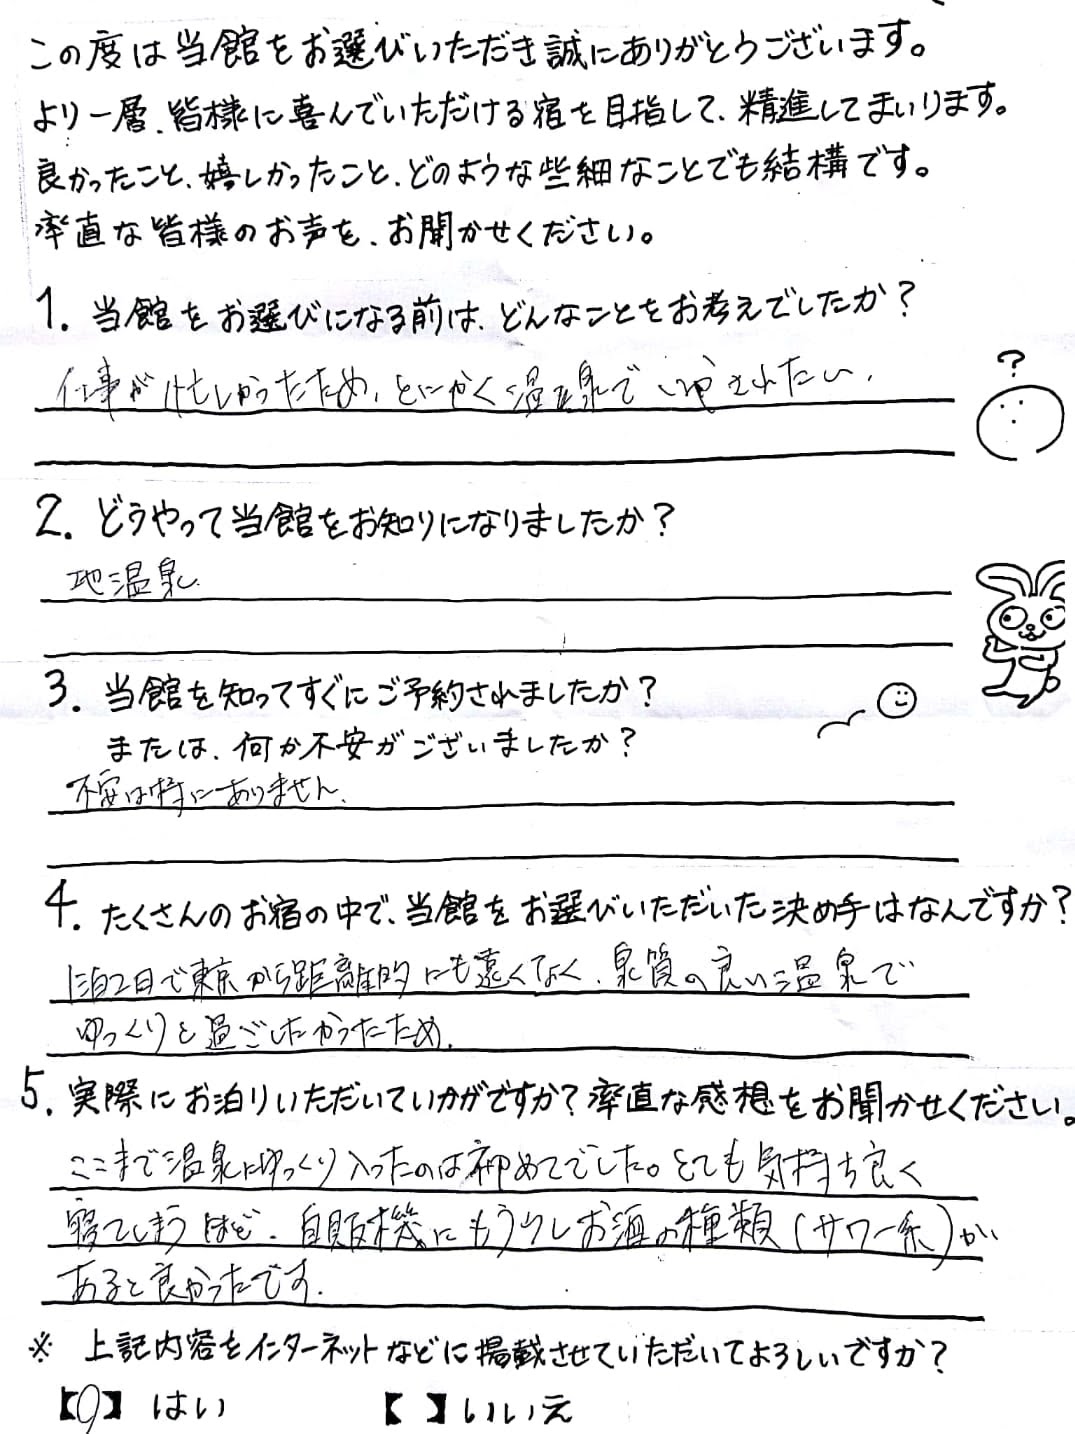 この度は当館をお選びいただき誠にありがとうございます。
より一層、皆様に喜んでいただける宿を目指して、精進してまいります。
良かったこと、嬉しかったこと、どのような些細なことでも結構です。
率直な皆様のお声を、お聞かせください。
1. 当館をお選びになる前は、どんなことをお考えでしたか?
仕事が忙しかったため、とにかく温泉でいやされたい。
?
2. どうやって当館をお知りになりましたか?
地温泉
3. 当館を知ってすぐにご予約されましたか?
または、何か不安がございましたか?
不安は特にありません。
4. たくさんのお宿の中で、当館をお選びいただいた決め手はなんですか?
1泊2日で東京から距離的にも遠くなく、泉質の良い温泉で
ゆっくりと過ごしたかったため。
5. 実際にお泊りいただいていかがですか?率直な感想をお聞かせください。
ここまで温泉にゆっくり入ったのは初めてでした。とても気持ち良く
寝てしまうほど。自販機にもう少しお酒の種類(サワー系)が
あると良かったです。
※ 上記内容をインターネットなどに掲載させていただいてよろしいですか?
【○】はい 【 】いいえ